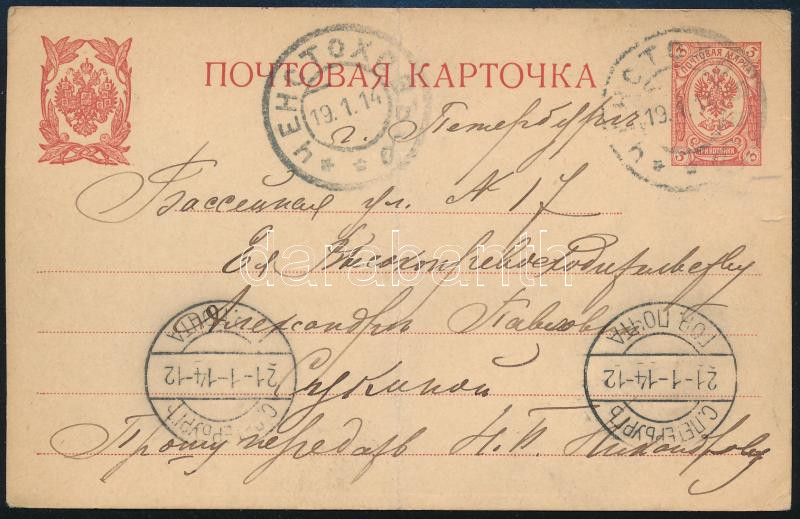 ПОЧТОВАЯ КАРТОЧКА
ПОЧТОВАЯ МАРКА
3 3
3 3
ЧЕНСТОХОВЪ
19.1.14
19.1.14
г. Петербургъ
Бассейная ул. N 17
Ея Высокопревосходительству
Александрѣ Павловнѣ
Прошу передать Н. П.
darabanth
ГОР. ПОЧТА
21-1-14-12
С.ПЕТЕРБУРГЪ
ГОР. ПОЧТА
21-1-14-12
С.ПЕТЕРБУРГЪ